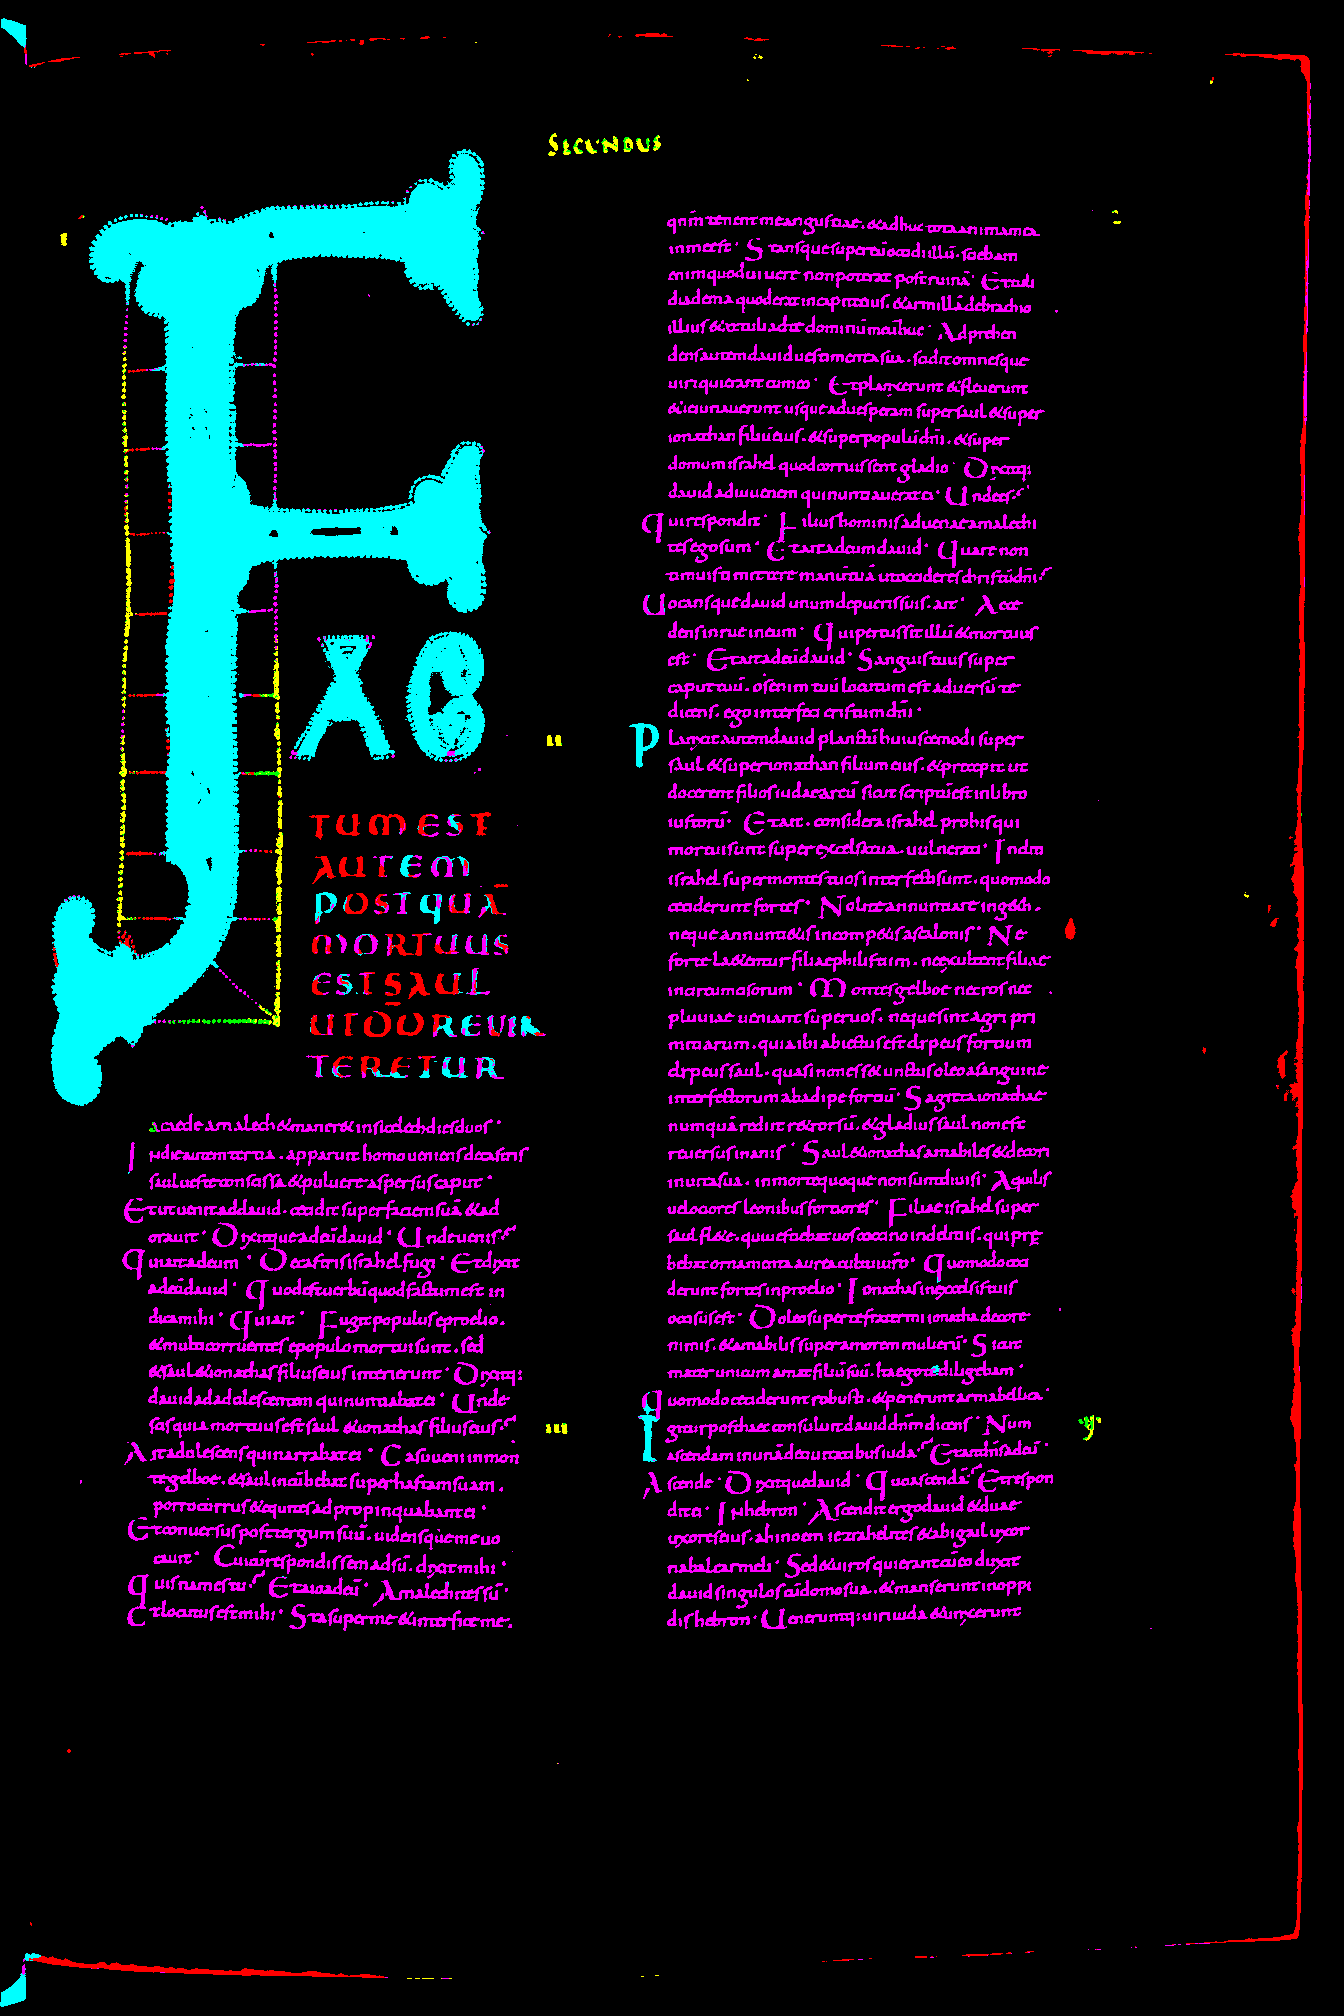 SECUNDUS
I
FAC
TUM EST
AUTEM
POSTQUĀ
MORTUUS
EST SAUL
UT DD REVER
TERETUR
a caede amalech & maneret in sicelech dies duos.
In die autem tertia. apparuit homo veniens de castris
saul veste conscissa & pulvere aspersus caput.
Et ut venit ad david. cecidit super faciem suā & ad
oravit. Dixitque ad eū david. Unde venis.
Qui ait ad eum. De castris israhel fugi. Et dixit
ad eū david. Quod est verbū quod factum est in
dica mihi. Qui ait. Fugit populus e proelio.
& multi corruentes e populo mortui sunt. sed
& saul & ionathas filius eius interierunt. Dixitq;
david ad adolescentem qui nuntiabat ei. Unde
scis quia mortuus est saul & ionathas filius eius.
Ait adolescens qui narrabat ei. Casu veni in mon
te gelboe. & saul incūbebat super hastam suam.
porro currus & equites adpropinquabant ei.
Et conversus post tergum suū. vidensque me vo
cavit. Cui cū respondissem adsū. dixit mihi.
Quis nam es tu. Et aio ad eū. Amalechites sū.
Et locutus est mihi. Sta super me & interfice me.
2
qnm tenent me angustiae. & adhuc tota anima mea
in me est. Stansque super eū occidi illū. sciebam
enim quod vivere non poterat post ruinā. Et tuli
diadema quod erat in capite eius. & armillā de brachio
illius & attuli ad te dominū meū huc. Adprehen
dens autem david vestimenta sua. scidit omnesque
viri qui erant cum eo. Et planxerunt & fleverunt
& ieiunaverunt usque ad vesperam super saul & super
ionathan filiū eius. & super populū dn̄i. & super
domum israhel quod corruissent gladio. Dixitq;
david ad iuvenem qui nuntiaverat ei. Unde es.
Qui respondit. Filius hominis advenae amalechi
tes ego sum. Et ait ad eum david. Quare non
timuisti mittere manū tuā ut occideres christū dn̄i.
Vocansque david unum de pueris suis. ait. Acce
dens inrue in eum. Qui percussit illū & mortuus
est. Et ait ad eū david. Sanguis tuus super
caput tuū. os enim tuū locutum est adversū te
dicens. ego interfeci cristum dn̄i.
II
Planxit autem david planctū huiuscemodi super
saul & super ionathan filium eius. & praecepit ut
docerent filios iuda e arcū sicut scriptū est in libro
iustorū. Et ait. considera israhel pro his qui
mortui sunt super excelsa tua. vulnerati. Incliti
israhel super montes tuos interfecti sunt. quomodo
ceciderunt fortes. Nolite annuntiare in geth.
neque annuntietis in compitis ascalonis. Ne
forte laetentur filiae philistim. ne exultent filiae
incircumcisorum. Montes gelboe nec ros nec
pluviae veniant super vos. neque sint agri pri
mitiarum. quia ibi abiectus est clipeus fortium
clipeus saul. quasi non esset unctus oleo a sanguine
interfectorum ab adipe fortiū. Sagitta ionathae
numquā rediit retrorsū. & gladius saul non est
reversus inanis. Saul & ionathas amabiles & decori
in vita sua. in morte quoque non sunt divisi. Aquilis
velociores leonibus fortiores. Filiae israhel super
saul flete. qui vestiebat vos coccino in deliciis. qui prę
bebat ornamenta aurea cultui vr̄o. Quomodo ceci
derunt fortes in proelio. Ionathas in excelsis tuis
occisus est. Doleo super te frater mi ionatha decore
nimis. & amabilis super amorem mulierū. Sicut
mater unicum amat filiū suū. ita ego te diligebam.
Quomodo ceciderunt robusti. & perierunt arma bellica.
III
Igitur post haec consuluit david dn̄m dicens. Num
ascendam in unā de civitatibus iuda. Et ait dn̄s ad eū.
Ascende. Dixitque david. Quo ascendā. Et respon
dit ei. In hebron. Ascendit ergo david & duae
uxores eius. ahinoem iezrahelites & abigail uxor
nabal carmeli. Sed & viros qui erant cū eo duxit
david singulos cū domo sua. & manserunt in oppi
dis hebron. Venerumq; viri iuda & unxerunt